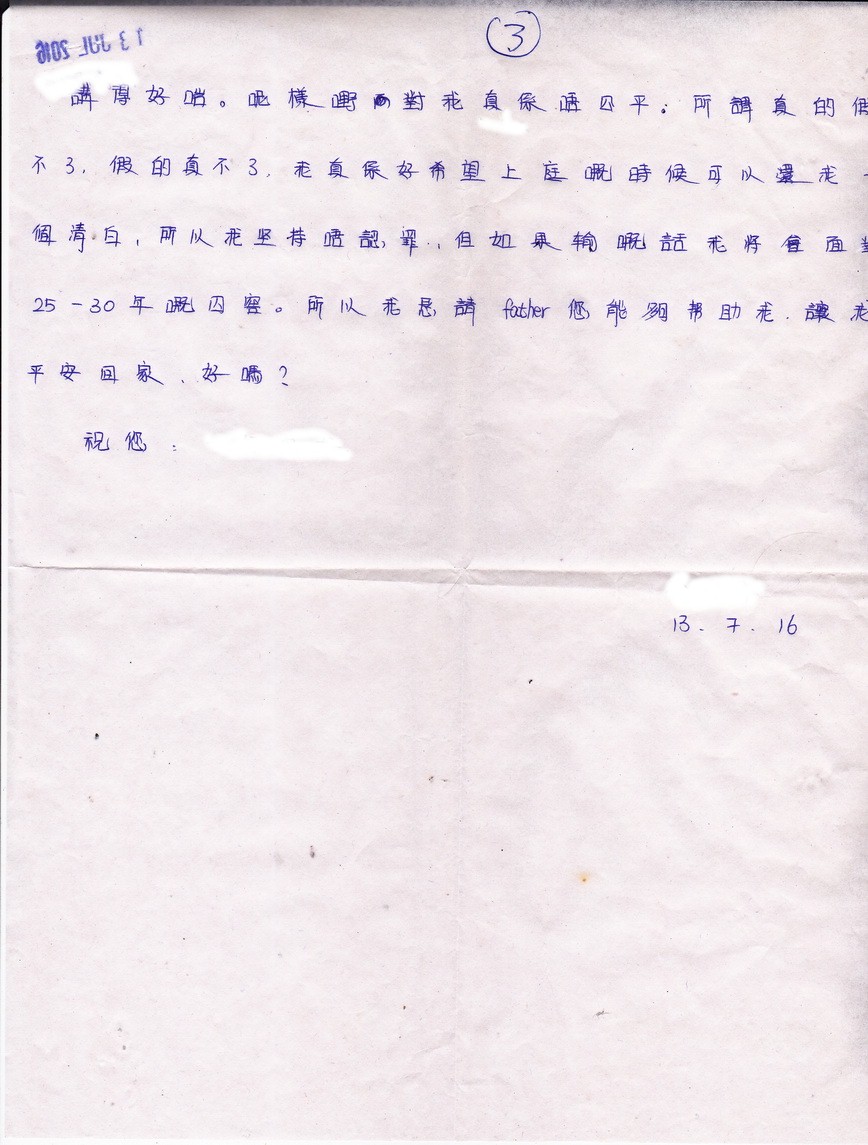 ③
13 JUL 2016
講得好啱。呢樣嘢對我真係唔公平。所謂真的假
不了, 假的真不了, 我真係好希望上庭嘅時候可以還我一
個清白, 所以我坚持唔認罪, 但如果輸嘅話我將會面對
25-30年嘅囚室。所以我恳請 father 您能夠帮助我. 讓我
平安回家、好嗎?
祝您:
13. 7. 16